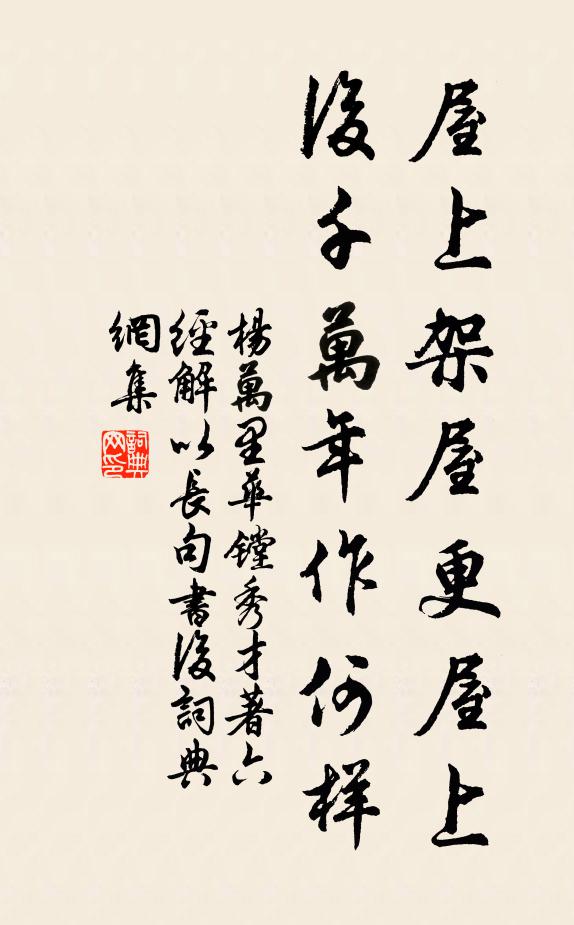 屋上架屋更屋上
後千萬年作何樣
楊萬里華鏜秀才著六
經解以長句書後詞典
網集
詞典網印